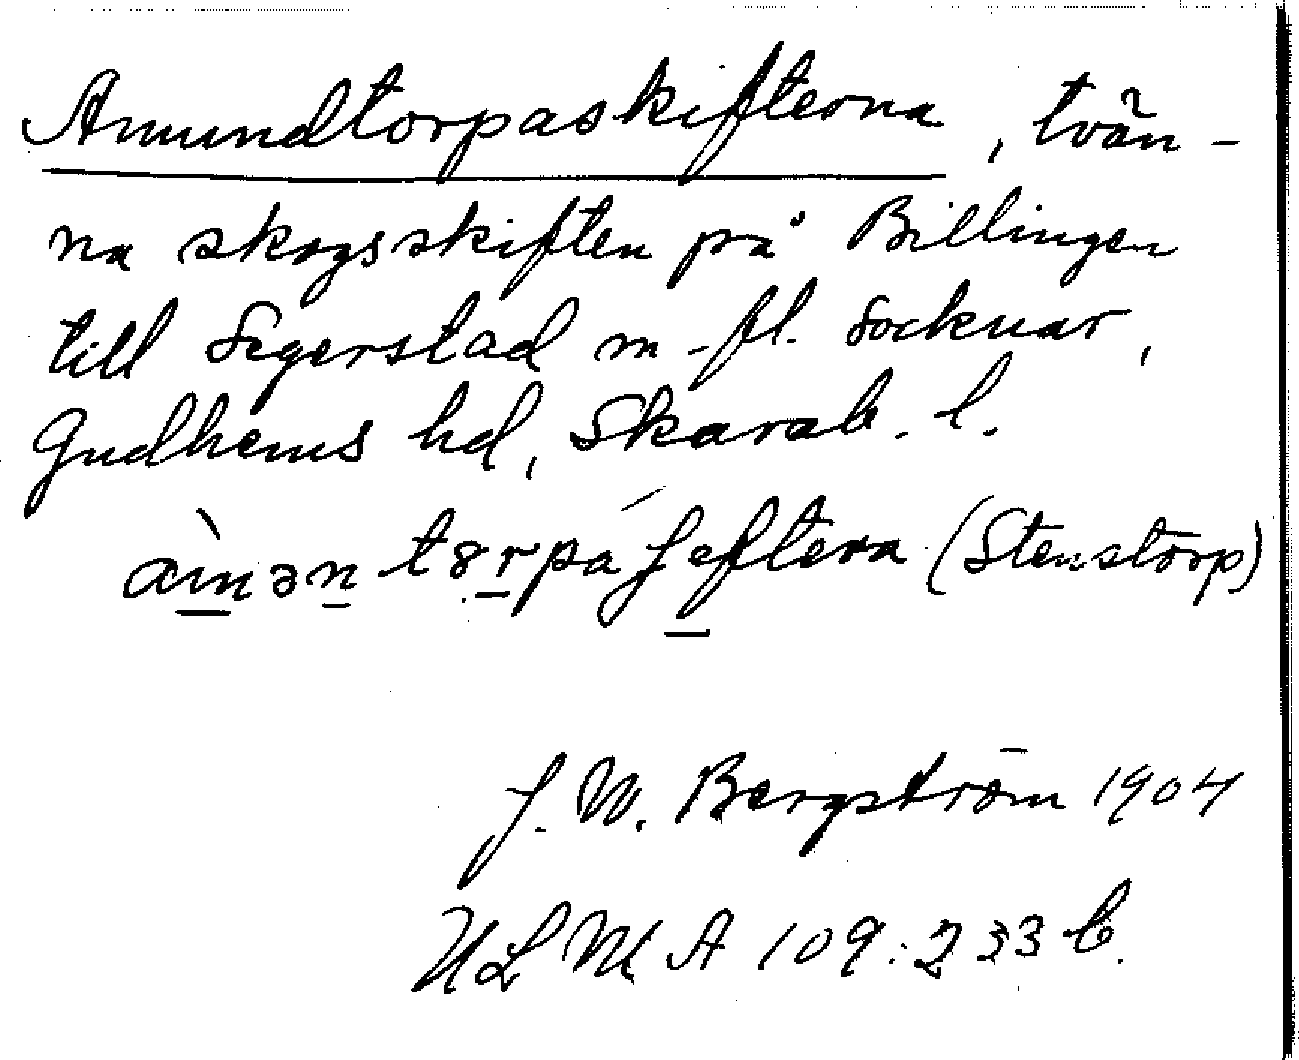 Amundtorpaskifterna, tvän-
na skogsskiften på Billingen
till Segerstad m.fl. socknar,
Gudhems hd, Skarab. l.
(Stenstorp)
J. W. Bergström 1904
ULMA 109:233 b.